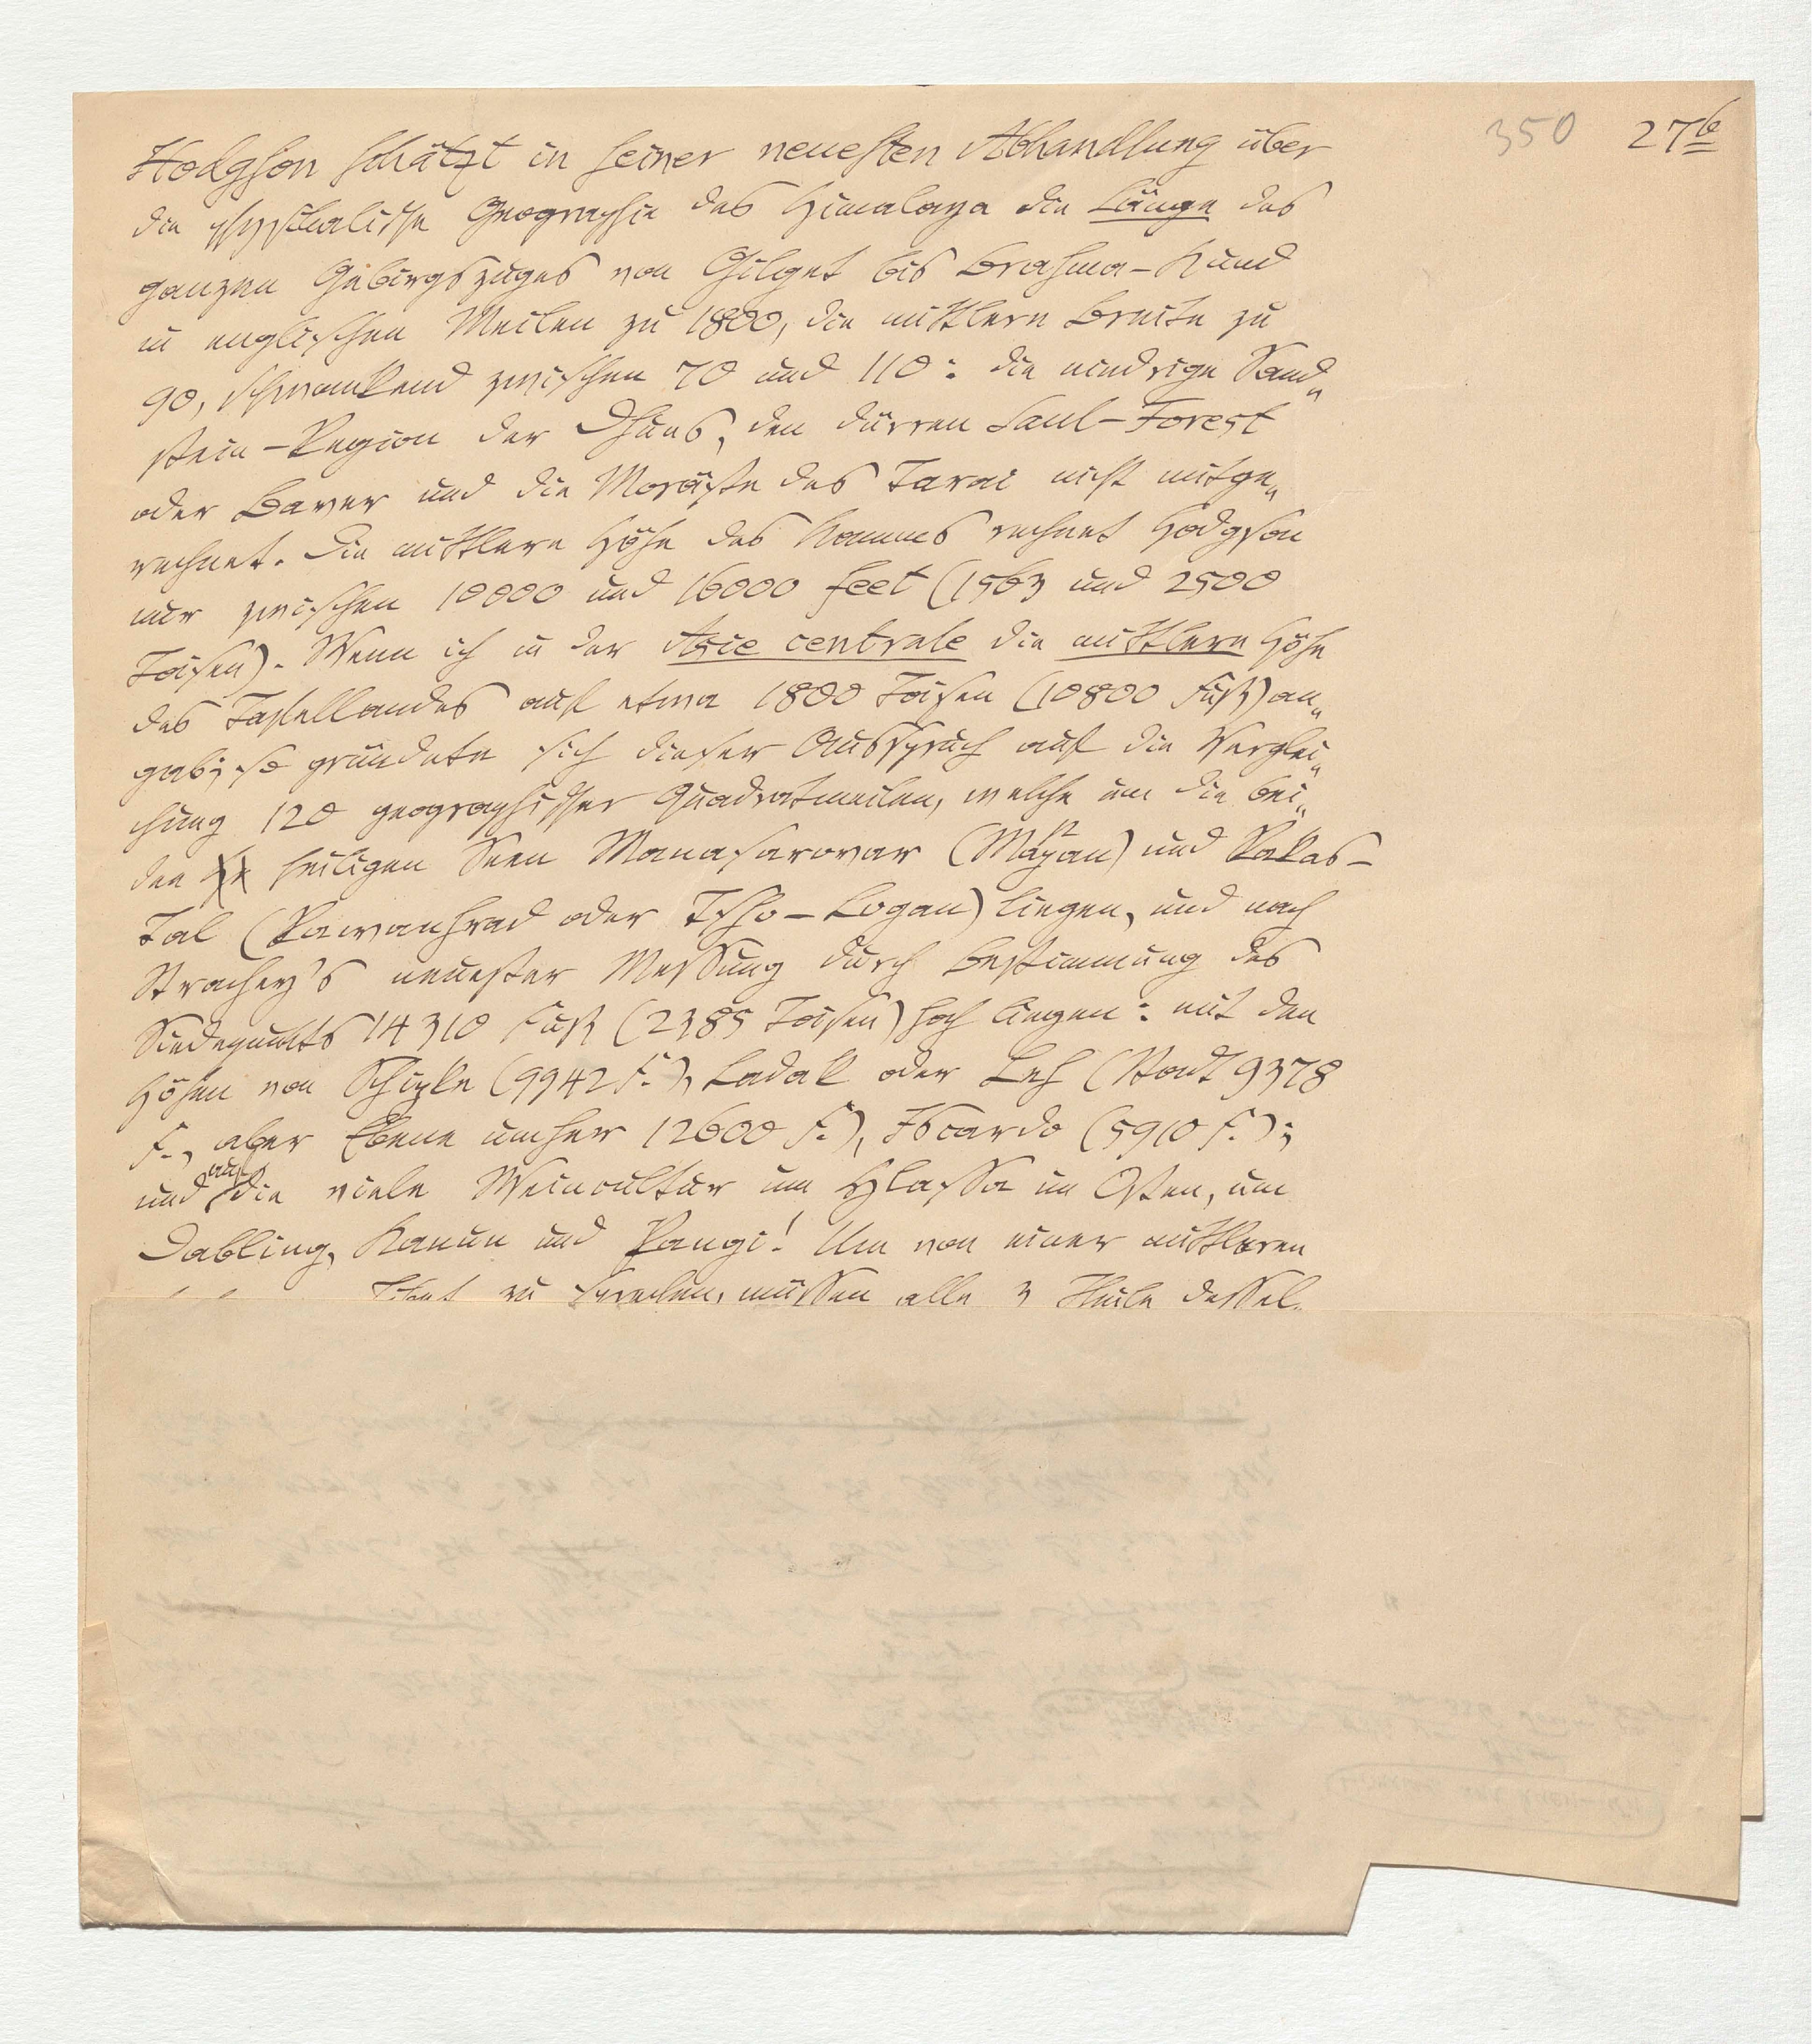 350 27b
Hodgson schätzt in seiner neuesten Abhandlung über
die physikalische Geographie des Himalaya die Länge des
ganzen Gebirgszuges von Gilget bis Brahma-Kund
in englischen Meilen zu 1800, die mittlere Breite zu
90, schwankend zwischen 70 und 110: die niedrige Sand„
stein-Region der Dhuns, den dürren Saul-Forest
oder Baver und die Moräste des Tarai nicht mitge„
rechnet. Die mittlere Höhe des Kamms rechnet Hodgson
nur zwischen 10000 und 16000 feet (1563 und 2500
Toisen). Wenn ich in der Asie centrale die mittlere Höhe
des Tafellandes auf etwa 1800 Toisen (10800 Fuß) an„
gab; so gründete sich dieser Ausspruch auf die Verglei„
chung 120 geographischer Quadratmeilen, welche um die bei„
den heiligen Seen Manasarovar (Mapan) und Rakas-
Tal (Rawanhrad oder Tso-Logan) liegen, und nach
Strachey's neuester Messung durch Bestimmung des
Siedepunkts 14310 Fuß (2385 Toisen) hoch liegen: mit den
Höhen von Schipke (9942 F.), Ladak oder Leh (Stadt 9378
F., aber Ebene umher 12600 F.), Iscardo (5910 F.);
und auf die viele Weincultur um Hlassa im Osten, um
Dabling, Kanun und Rangi! Um von einer mittleren
Tibet zu sprechen, müssen alle 3 Theile dessel„